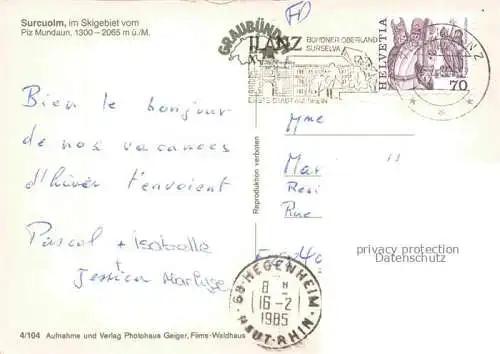 Surcuolm, im Skigebiet vom
Piz Mundaun, 1300 – 2065 m ü./M.
GRAUBÜNDEN
ILANZ
BÜNDNER OBERLAND
SURSELVA
ERSTE STADT AM RHEIN
HELVETIA
70
Bien le bonjour
de nos vacances
d'hiver t'envoient
Pascal + Isabelle
+ Jessica
Reproduktion verboten
Mme
Mar
Resi
Rue
privacy protection
Datenschutz
68 HEGENHEIM
8 H
16-2
1985
HAUT-RHIN
4/104 Aufnahme und Verlag Photohaus Geiger, Flims-Waldhaus